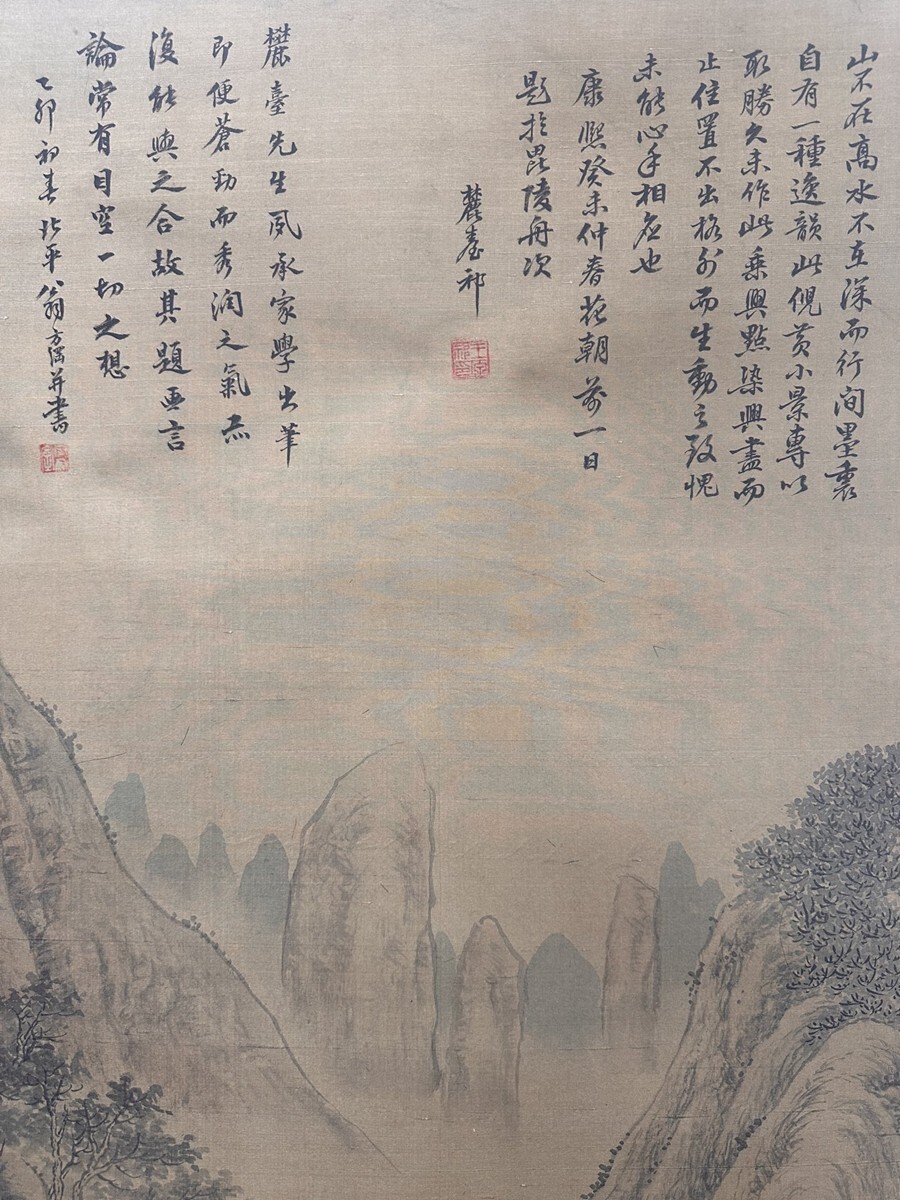 山不在高水不在深而行間墨裏
自有一種逸韻此倪黃小景專以
取勝久未作此乘興點染興盡而
止位置不出格外而生動之致愧
未能心手相應也
康熙癸未仲春花朝前一日
題於毘陵舟次
麓臺祁
麓臺先生夙承家學出筆
即便蒼勁而秀潤之氣亦
復能與之合故其題画言
論常有目空一切之想
乙卯初春北平翁方綱并書